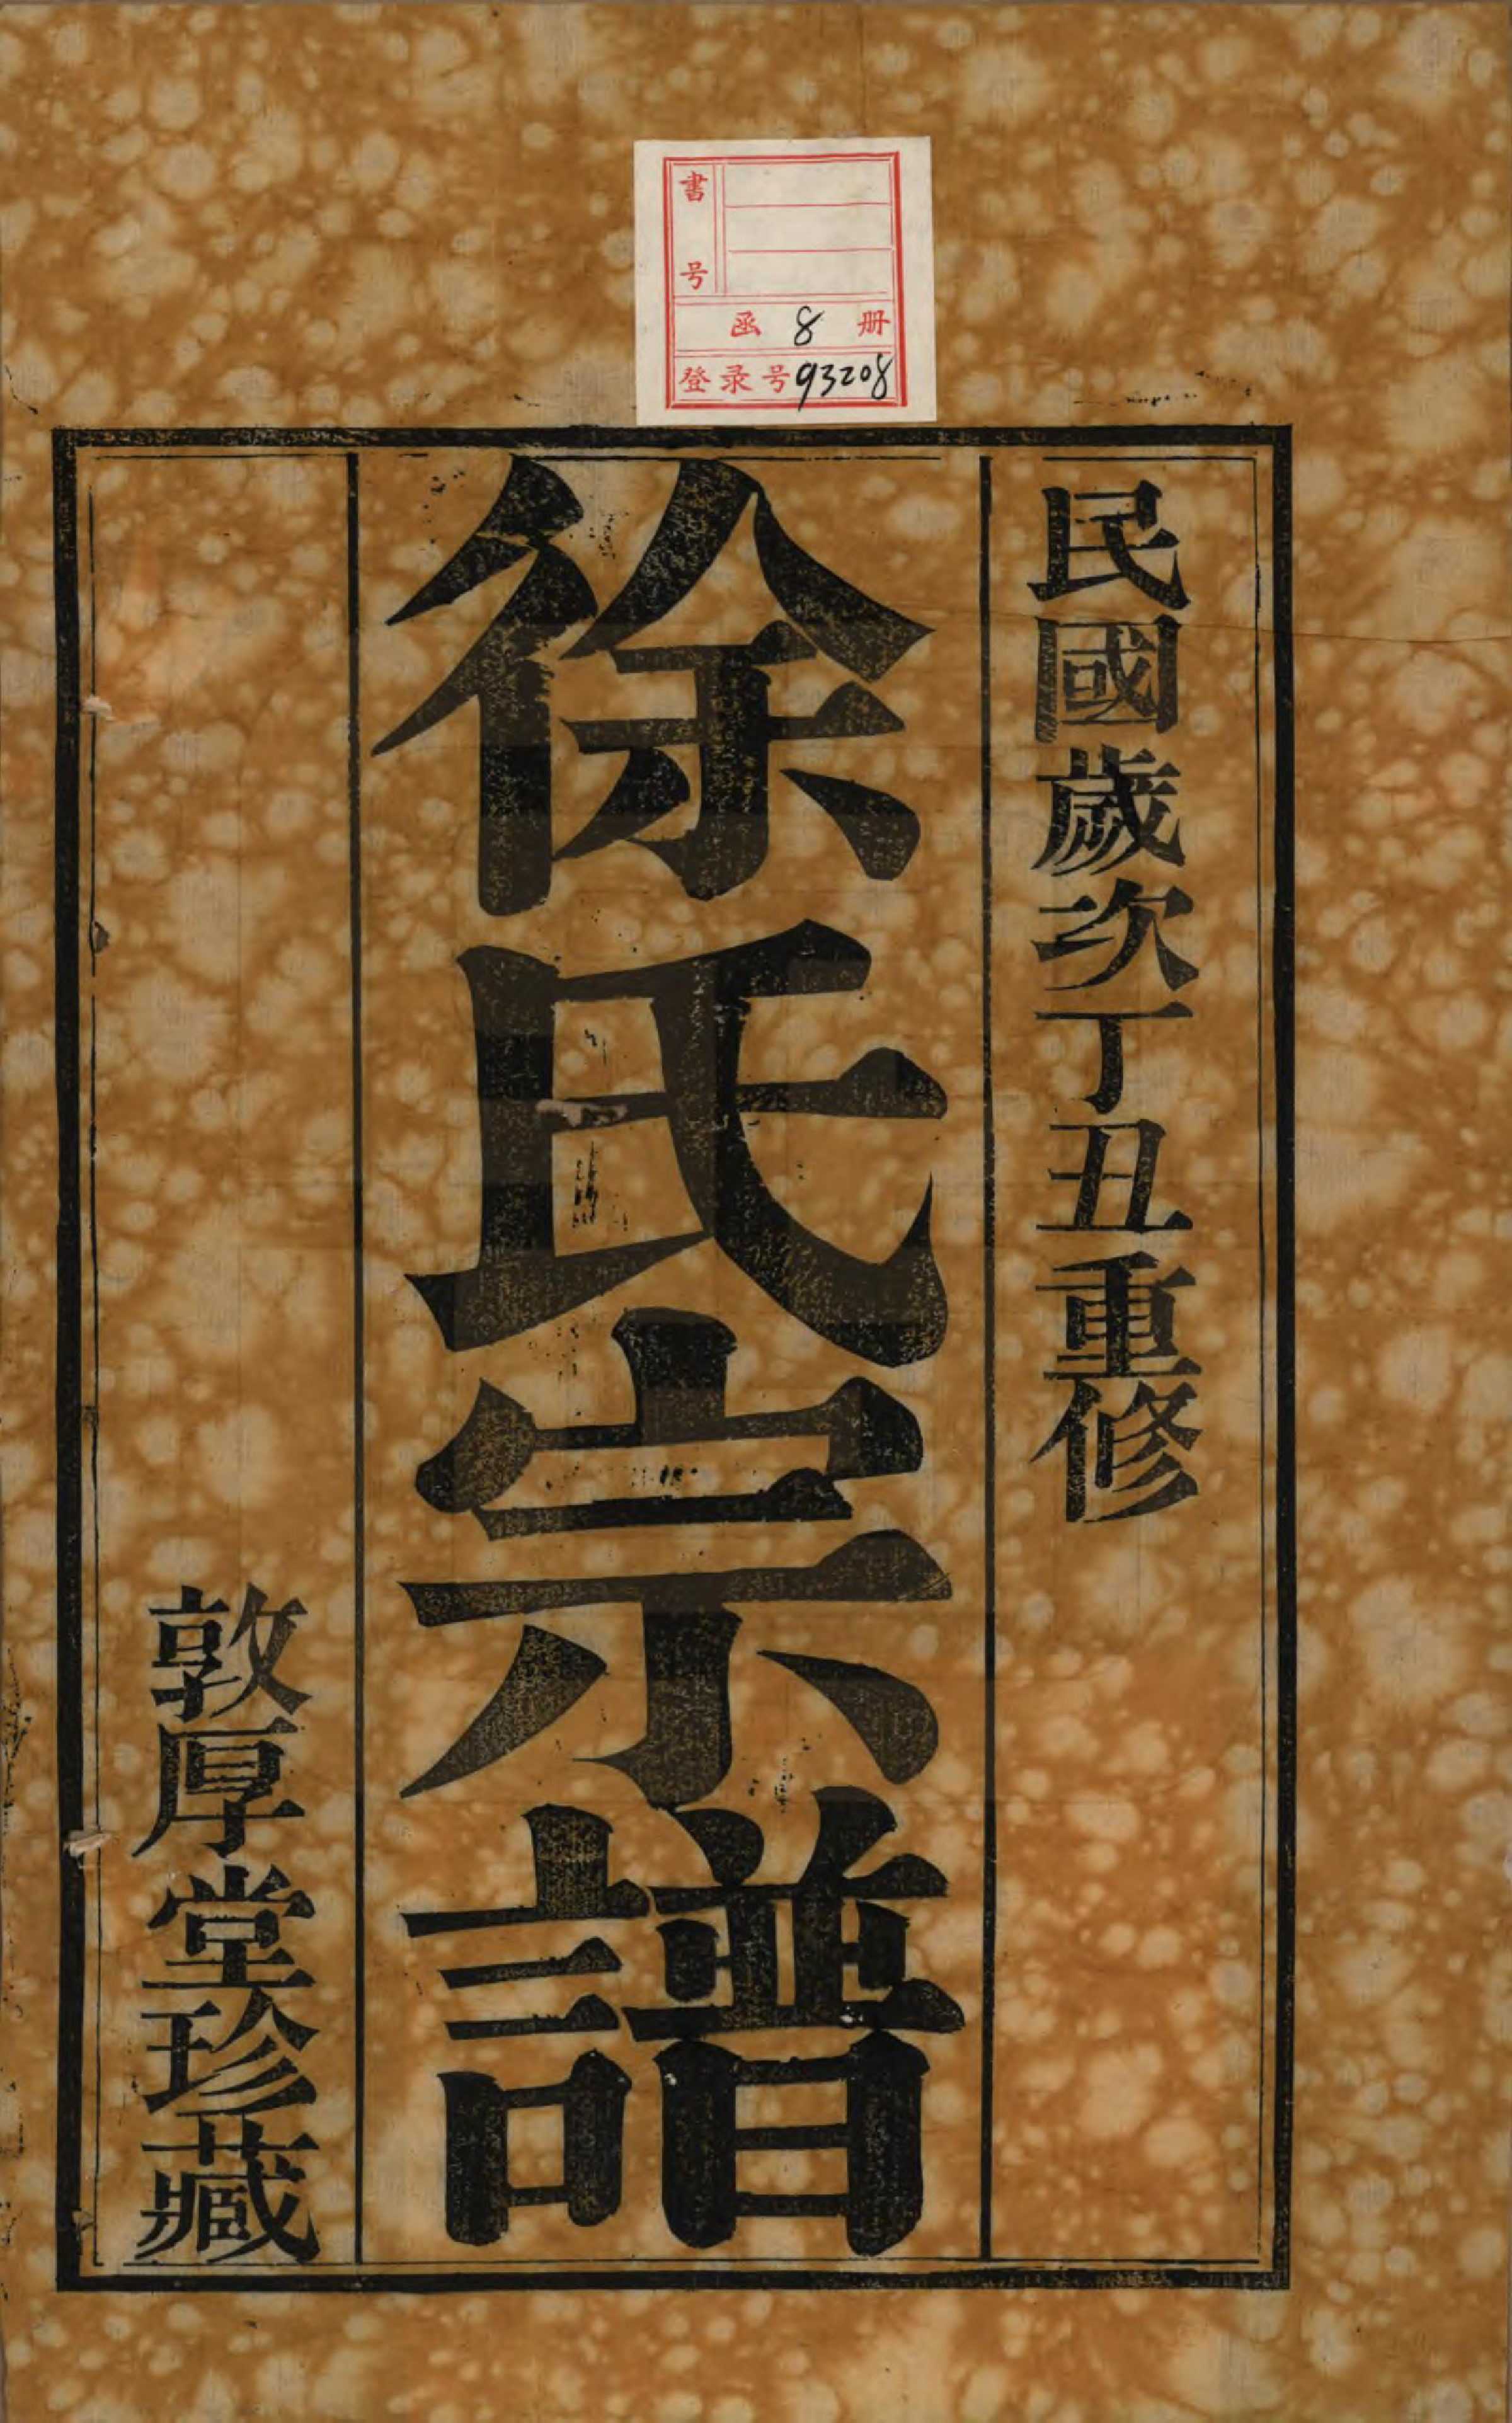 書号
函 8 册
登录号93208
民國歲次丁丑重修
徐氏宗譜
敦厚堂珍藏